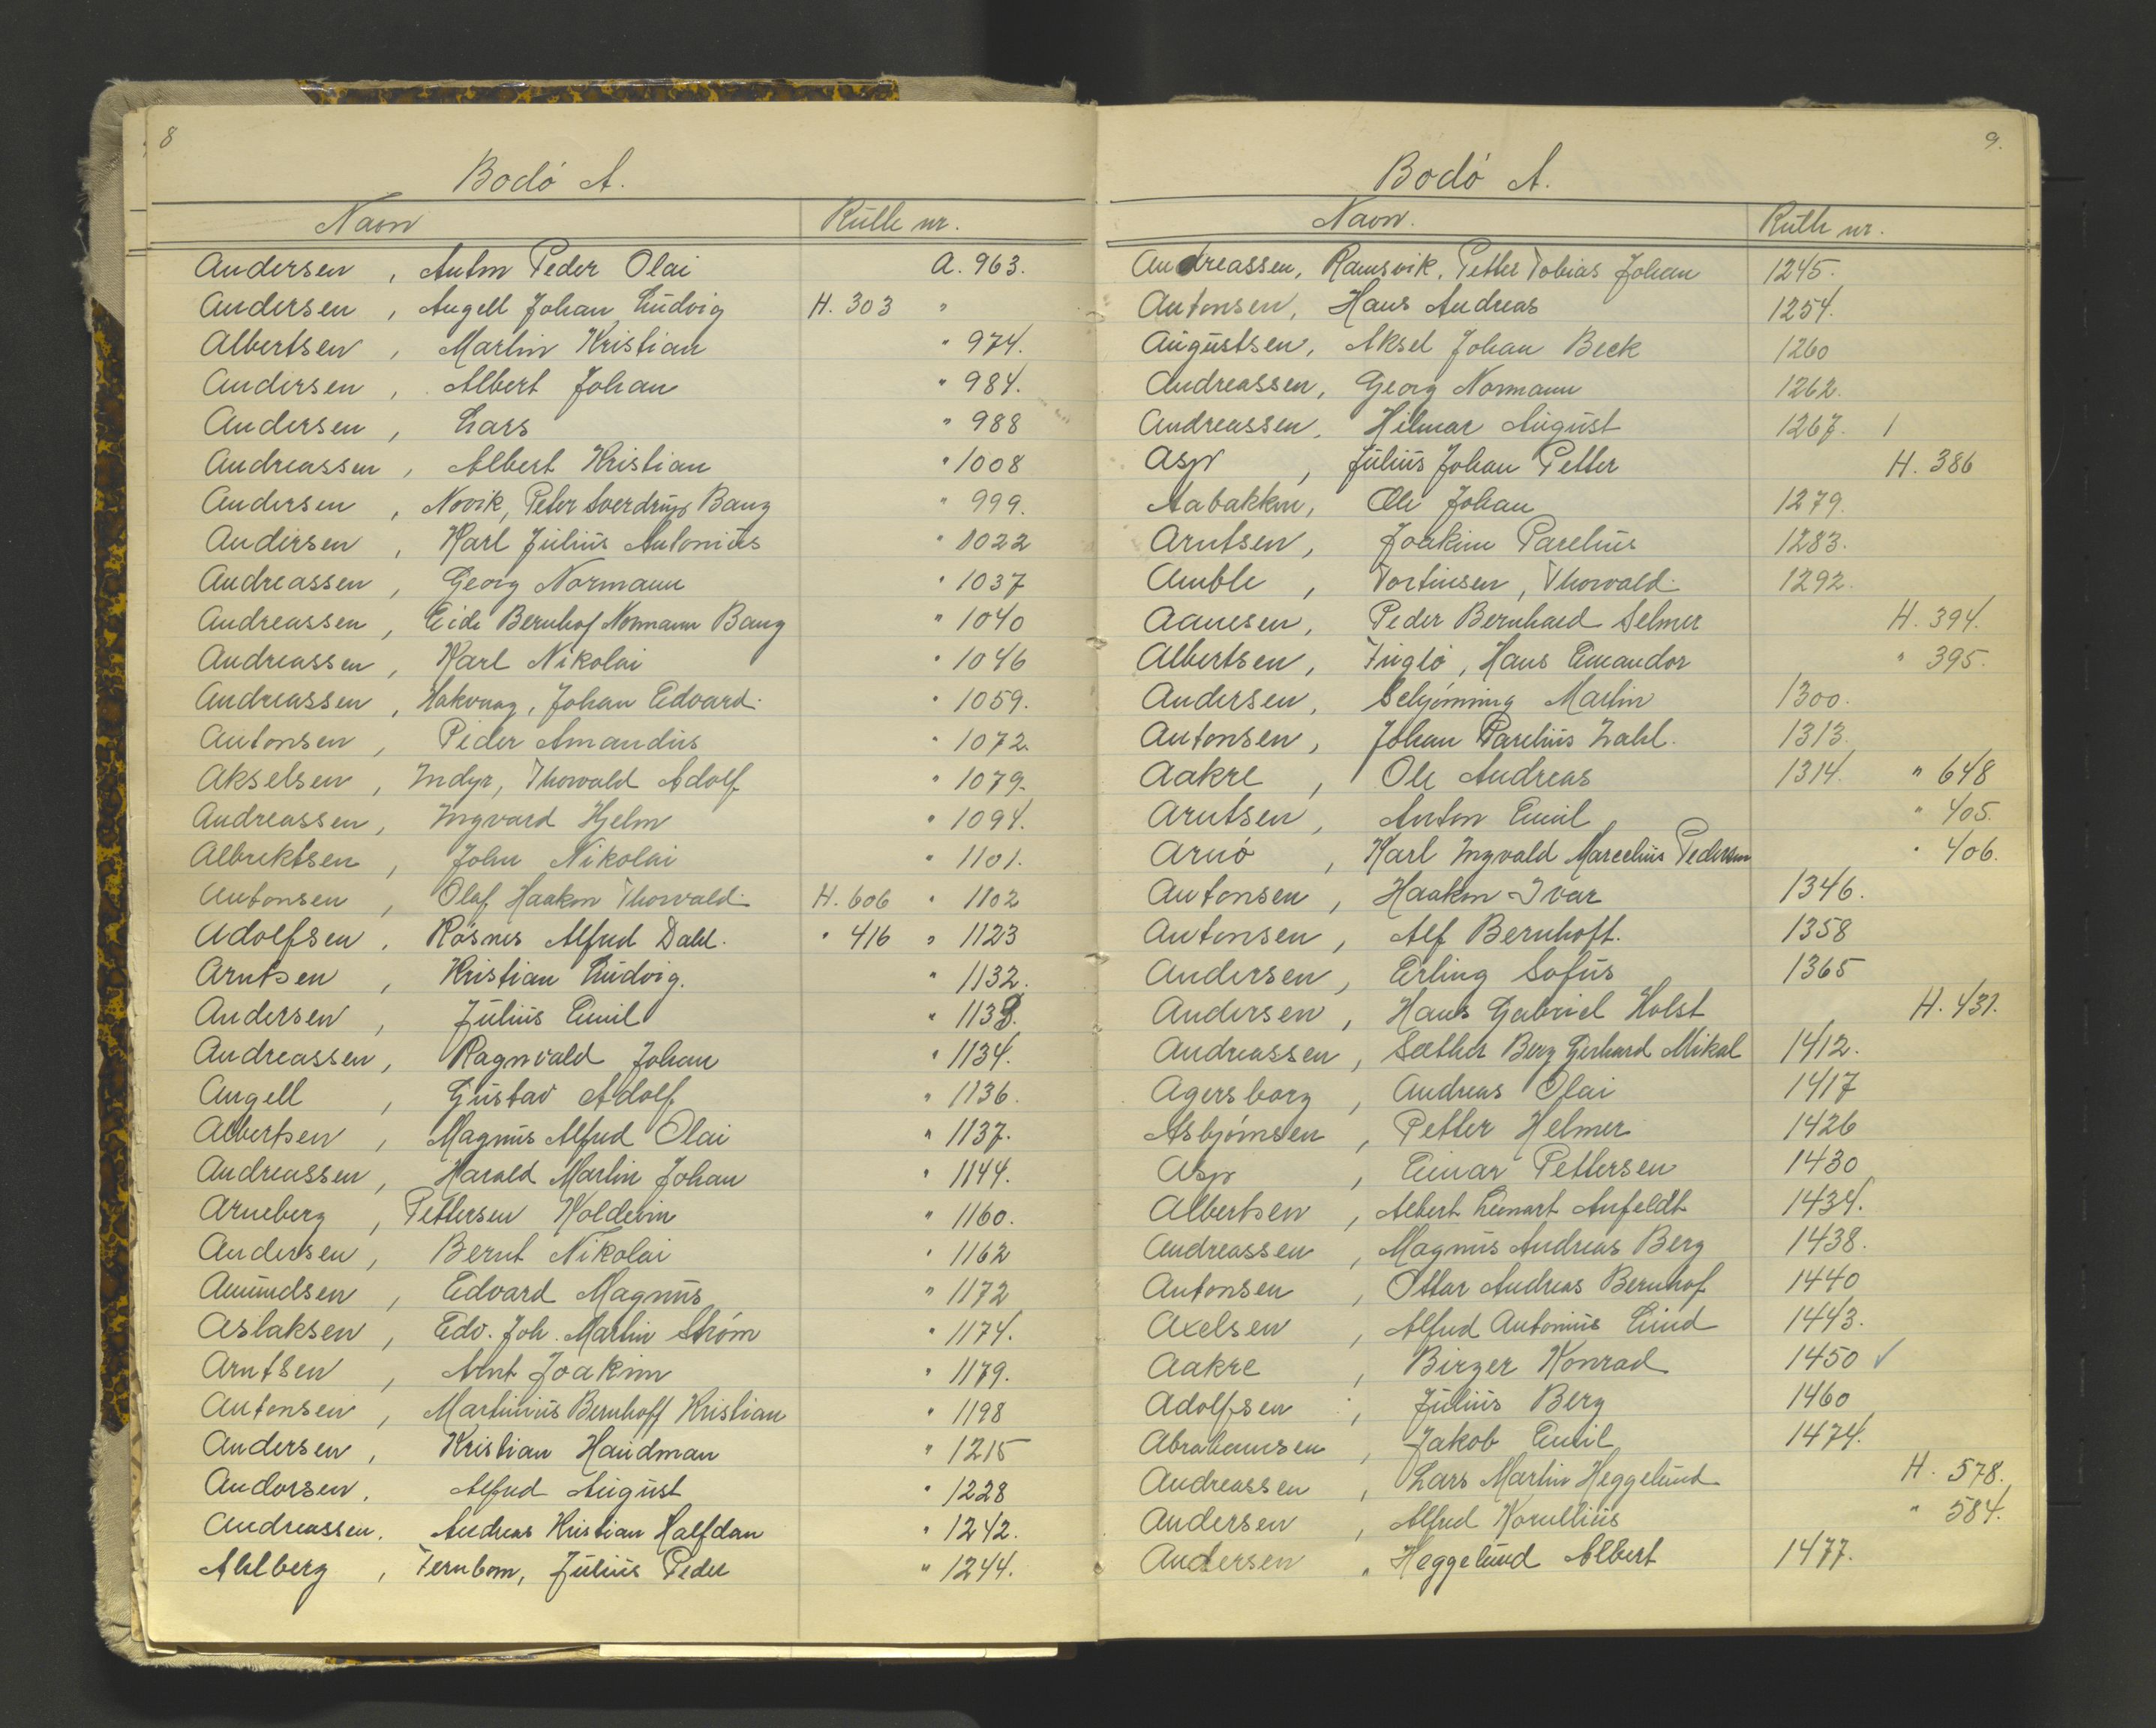 8
Bodø A.
Navn Rulle nr.
Andersen, Anton Peder Olai A. 963.
Andersen, Angell Johan Ludvig H. 303 "
Albertsen, Martin Kristian " 974.
Andersen, Albert Johan " 984.
Andersen, Lars " 988
Andreassen, Albert Kristian " 1008
Andersen, Novik, Peter Sverdrup Bang " 999.
Andersen, Karl Julius Antonius " 1022
Andreassen, Georg Normann " 1037
Andreassen, Eide Bernhof Normann Bang " 1040
Andreassen, Karl Nikolai " 1046
Andreassen, Hakvaag, Johan Edvard. " 1059.
Antonsen, Peder Amandus " 1072.
Akselsen, Indyr, Thorvald Adolf " 1079.
Andreassen, Ingvard Hjelm " 1094.
Albrektsen, John Nikolai " 1101.
Antonsen, Olaf Haakon Thorvald H. 606 " 1102
Adolfsen, Røsnes Alfred Dahl. " 416 " 1123
Arntsen, Kristian Ludvig. " 1132.
Andersen, Julius Emil " 1133.
Andreassen, Ragnvald Johan " 1134.
Angell, Gustav Adolf " 1136.
Albertsen, Magnus Alfred Olai " 1137.
Andreassen, Harald Martin Johan " 1144.
Arneberg, Pettersen Holdeinn " 1160.
Andersen, Bernt Nikolai " 1162
Amundsen, Edvard Magnus " 1172
Aslaksen, Edv. Joh. Martin Strøm " 1174.
Arntsen, Arnt Joakim " 1179.
Antonsen, Martinius Bernhoff Kristian " 1198
Andersen, Kristian Haudman " 1215
Andorsen, Alfred August " 1228
Andreassen, Andreas Kristian Halfdan " 1242.
Ahlberg, Fernbom, Julius Peder " 1244.
9.
Bodø A.
Navn. Rulle nr.
Andreassen, Ramsvik, Petter Tobias Johan 1245.
Antonsen, Hans Andreas 1254.
Augustsen, Aksel Johan Beck 1260
Andreassen, Georg Normann 1262.
Andreassen, Hilmar August 1267. 1
Asp, Julius Johan Petter H. 386
Aabakken, Ole Johan 1279.
Arntsen, Joakim Parelius 1283.
Amble, Tortinsen, Thorvald 1292.
Aanesen, Peder Bernhard Selmer H. 394.
Albertsen, Fuglø, Hans Emandor " 395.
Andersen, Schjønning Martin 1300.
Antonsen, Johan Parelius Zahl. 1313.
Aakre, Ole Andreas 1314. " 648
Arntsen, Anton Emil " 405.
Arnø, Karl Ingvald Marcelius Pedersen " 406.
Antonsen, Haakon Ivar 1346.
Antonsen, Alf Bernhoft. 1358
Andersen, Erling Sofus 1365
Andersen, Hans Gabriel Holst H. 431.
Andreassen, Sæther Berg Gerhard Mikal 1412.
Agersborg, Andreas Olai 1417
Asbjørnsen, Petter Helmer 1426
Asp, Einar Pettersen 1430
Albertsen, Albert Lennart Anfeldt 1434.
Andreassen, Magnus Andreas Berg 1438.
Antonsen, Ottar Andreas Bernhof 1440
Axelsen, Alfred Antonius Lund 1443.
Aakre, Birger Konrad 1450 ✓
Adolfsen, Julius Berg 1460
Abrahamsen, Jakob Emil 1474.
Andreassen, Lars Martin Heggelund H. 578.
Andersen, Alfred Kornelius " 584.
Andersen, Heggelund Albert 1477.